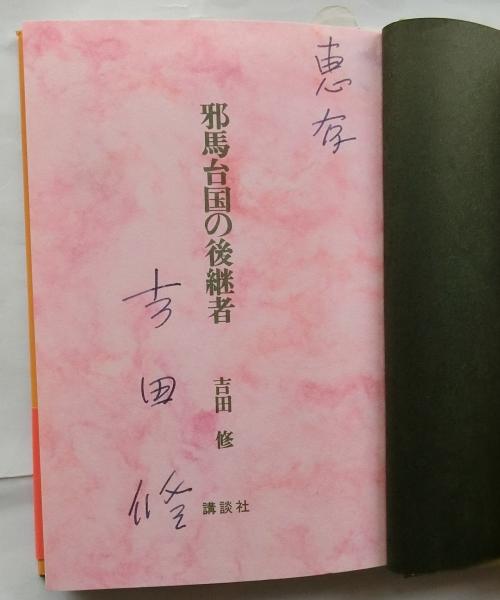 恵存
邪馬台国の後継者
吉田 修
講談社
吉田修